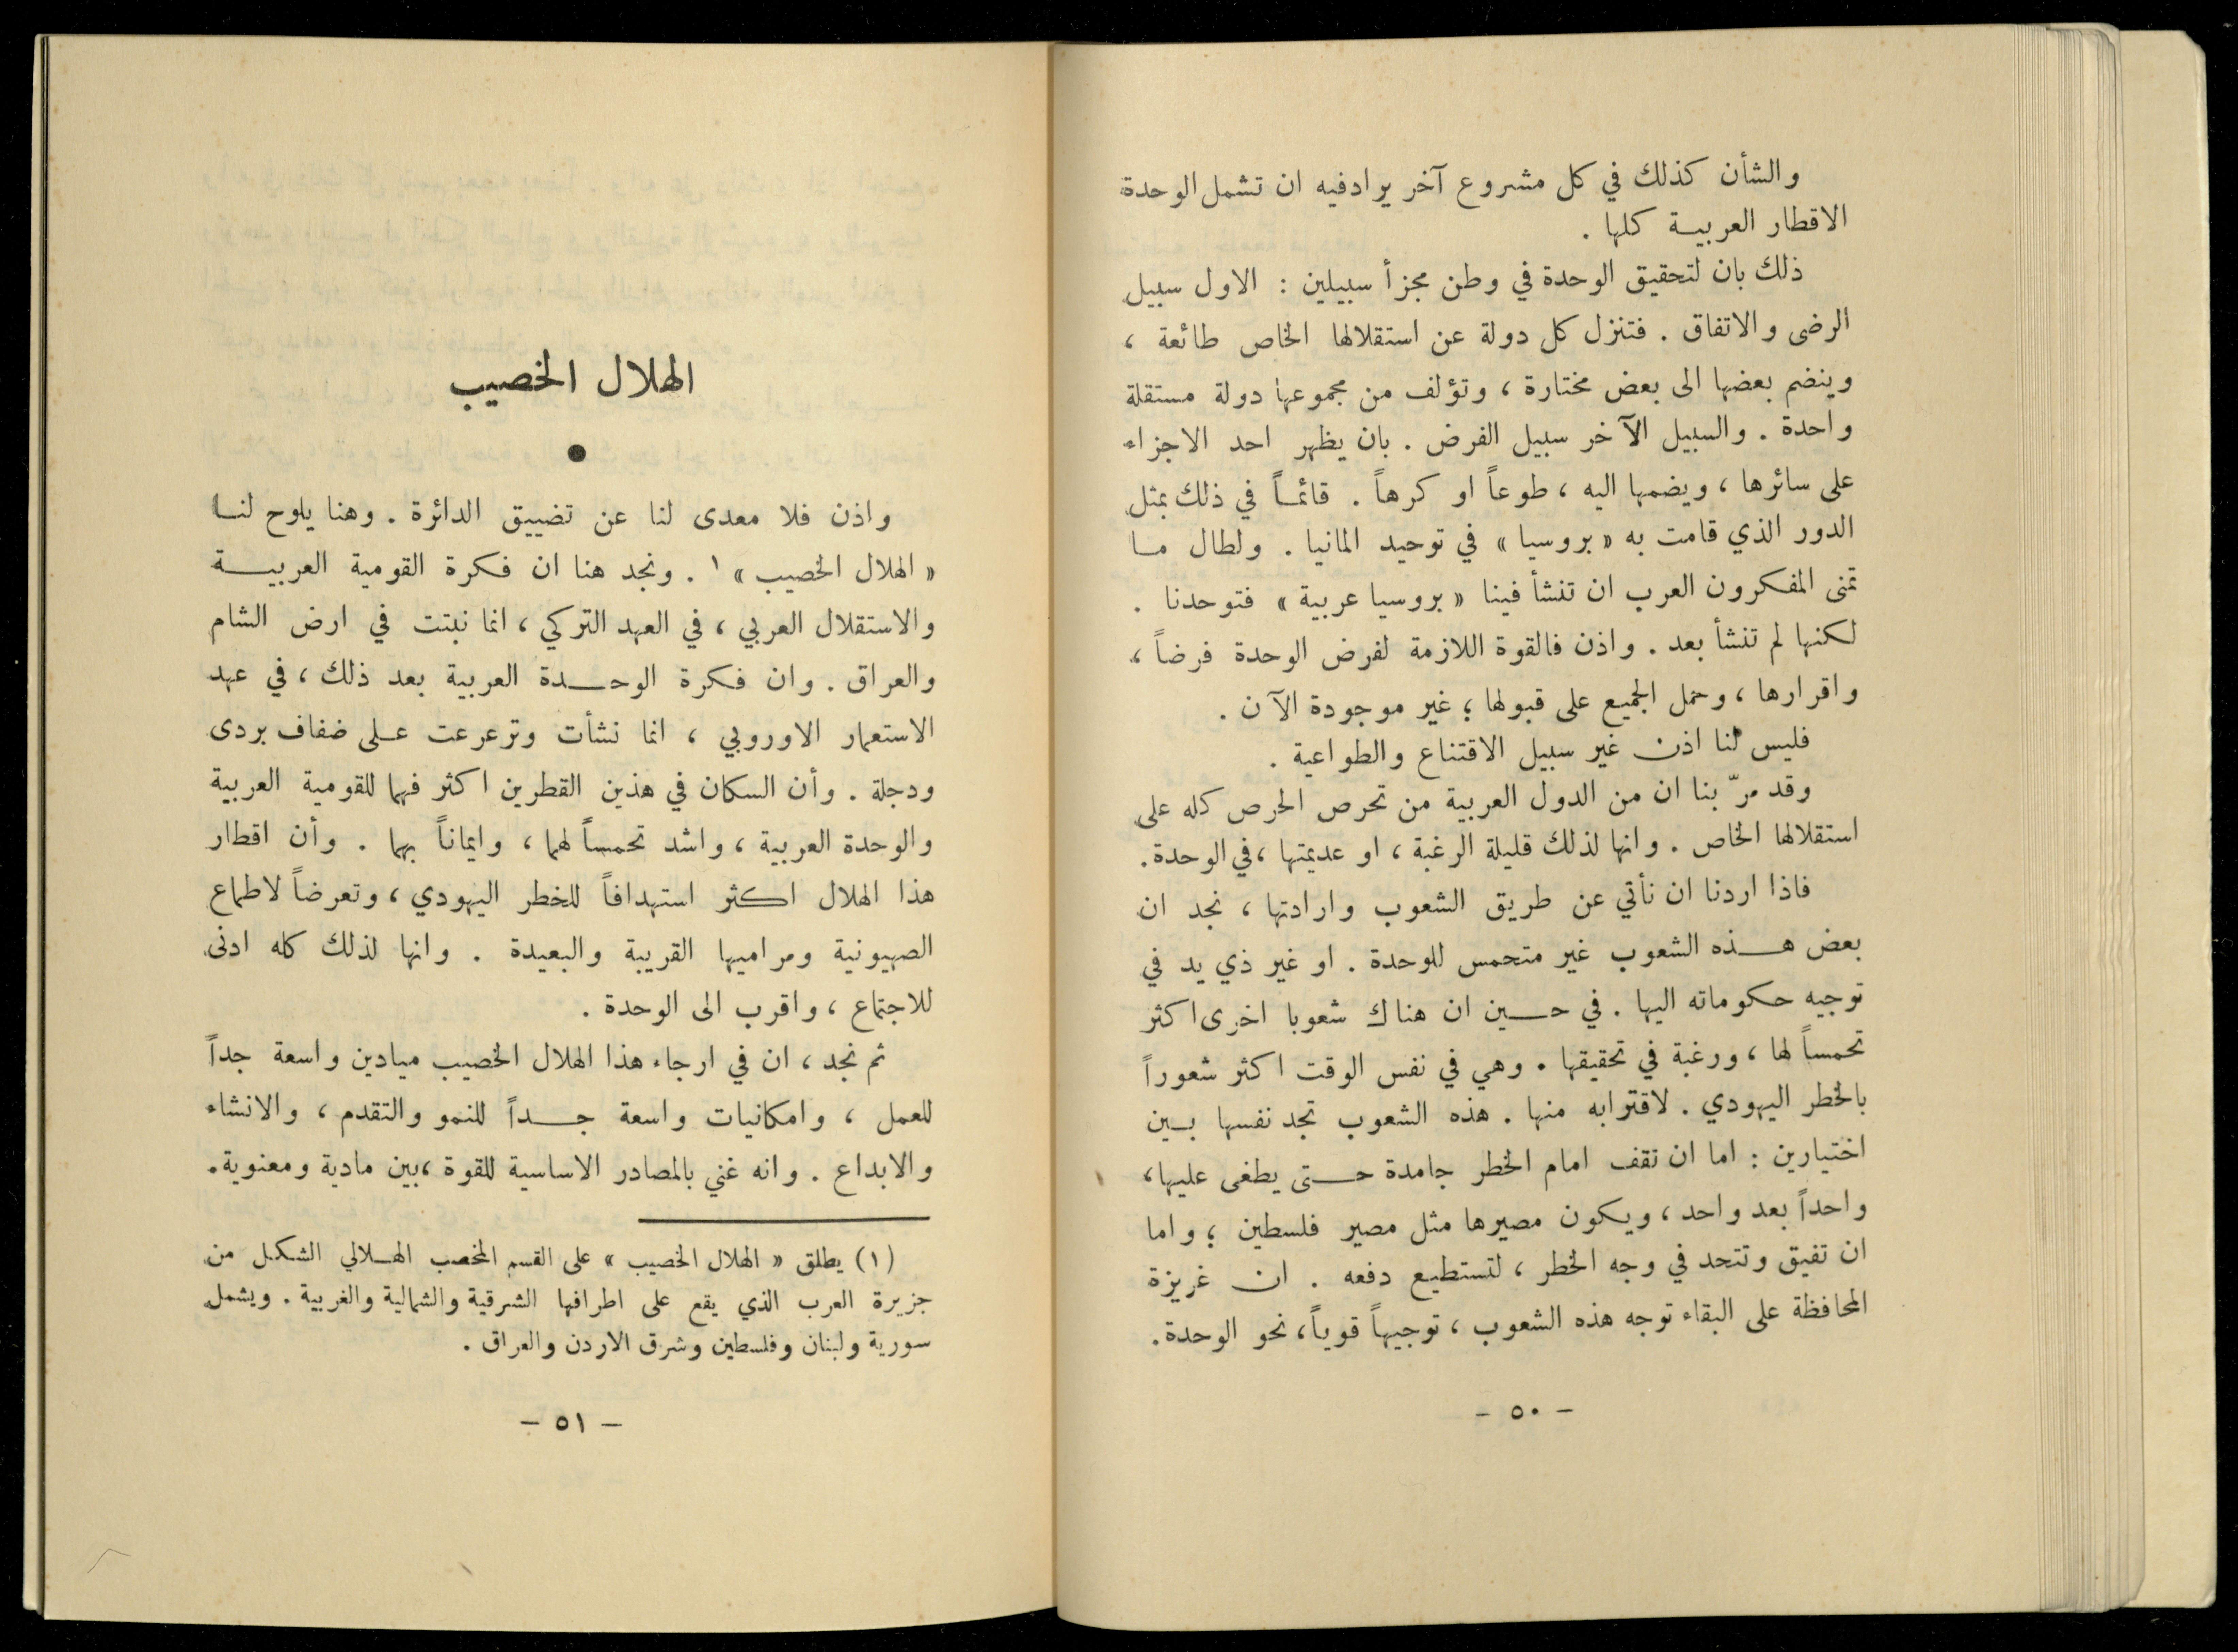 والشأن كذلك في كل مشروع آخر يرادفيه ان تشمل الوحدة
الاقطار العربية كلها .
ذلك بان لتحقيق الوحدة في وطن مجزأ سبيلين : الاول سبيل
الرضى والاتفاق . فتنزل كل دولة عن استقلالها الخاص طائعة ،
وينضم بعضها الى بعض مختارة ، وتؤلف من مجموعها دولة مستقلة
واحدة . والسبيل الآخر سبيل الفرض . بان يظهر احد الاجزاء
على سائرها ، ويضمها اليه ، طوعاً او كرهاً . قائماً في ذلك بمثل
الدور الذي قامت به « بروسيا » في توحيد المانيا . ولطال ما
تمنى المفكرون العرب ان تنشأ فينا « بروسيا عربية » فتوحدنا .
لكنها لم تنشأ بعد . واذن فالقوة اللازمة لفرض الوحدة فرضاً ،
واقرارها ، وحمل الجميع على قبولها ؛ غير موجودة الآن .
فليس لنا اذن غير سبيل الاقتناع والطواعية .
وقد مرّ بنا ان من الدول العربية من تحرص الحرص كله على
استقلالها الخاص . وانها لذلك قليلة الرغبة ، او عديمتها ، في الوحدة .
فاذا اردنا ان نأتي عن طريق الشعوب وارادتها ، نجد ان
بعض هذه الشعوب غير متحمس للوحدة . او غير ذي يد في
توجيه حكوماته اليها . في حين ان هناك شعوبا اخرى اكثر
تحمساً لها ، ورغبة في تحقيقها . وهي في نفس الوقت اكثر شعوراً
بالخطر اليهودي . لاقترابه منها . هذه الشعوب تجد نفسها بين
اختيارين : اما ان تقف امام الخطر جامدة حتى يطغى عليها ،
واحداً بعد واحد ، ويكون مصيرها مثل مصير فلسطين ؛ واما
ان تفيق وتتحد في وجه الخطر ، لتستطيع دفعه . ان غريزة
المحافظة على البقاء توجه هذه الشعوب ، توجيهاً قوياً ، نحو الوحدة .
- ٥٠ -
الهلال الخصيب
●
واذن فلا معدى لنا عن تضييق الدائرة . وهنا يلوح لنا
« الهلال الخصيب » ١ . ونجد هنا ان فكرة القومية العربية
والاستقلال العربي ، في العهد التركي ، انما نبتت في ارض الشام
والعراق . وان فكرة الوحدة العربية بعد ذلك ، في عهد
الاستعمار الاوروبي ، انما نشأت وترعرعت على ضفاف بردى
ودجلة . وأن السكان في هذين القطرين اكثر فهما للقومية العربية
والوحدة العربية ، واشد تحمساً لهما ، وايماناً بهما . وأن اقطار
هذا الهلال اكثر استهدافاً للخطر اليهودي ، وتعرضاً لاطماع
الصهيونية ومراميها القريبة والبعيدة . وانها لذلك كله ادنى
للاجتماع ، واقرب الى الوحدة .
ثم نجد ، ان في ارجاء هذا الهلال الخصيب ميادين واسعة جداً
للعمل ، وامكانيات واسعة جداً للنمو والتقدم ، والانشاء
والابداع . وانه غني بالمصادر الاساسية للقوة ، بين مادية ومعنوية .
(١) يطلق « الهلال الخصيب » على القسم المخصب الهلالي الشكل من
جزيرة العرب الذي يقع على اطرافها الشرقية والشمالية والغربية . ويشمل
سورية ولبنان وفلسطين وشرق الاردن والعراق .
- ٥١ -